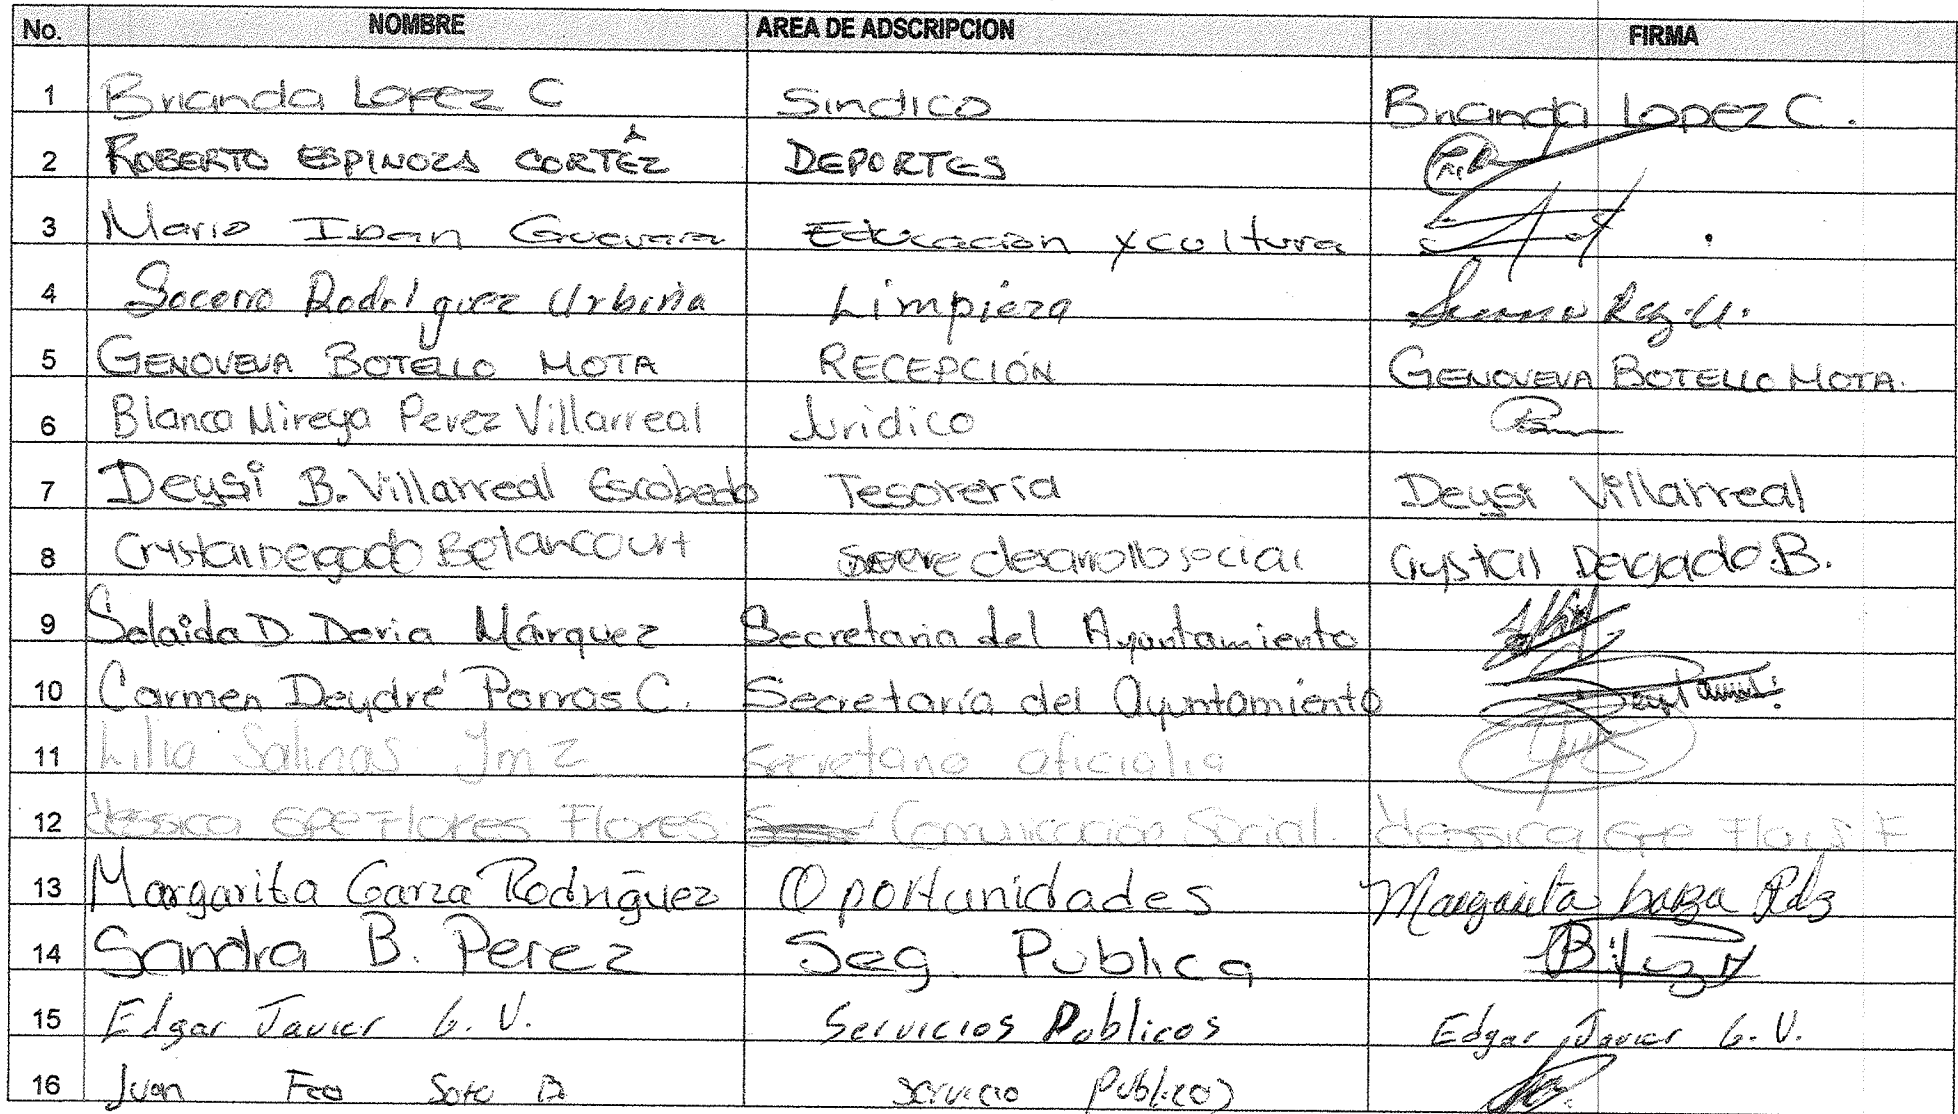 No. NOMBRE AREA DE ADSCRIPCION FIRMA
1 Brianda Lopez C Sindico Brianda Lopez C.
2 ROBERTO ESPINOZA CORTÉZ DEPORTES
3 Mario Ivan Guevara Educación y cultura
4 Socorro Rodríguez Urbina Limpieza Rdz. U.
5 GENOVEVA BOTELLO MOTA RECEPCIÓN GENOVEVA BOTELLO MOTA.
6 Blanca Mireya Perez Villarreal Juridico
7 Deysi B. Villarreal Escobedo Tesorería Deysi Villarreal
8 Crystal Delgado Betancourt desarrollo social Crystal Delgado B.
9 Solaida D Doria Márquez Secretaria del Ayuntamiento
10 Carmen Deydré Porras C. Secretaría del Ayuntamiento
11 Lilia Salinas Jmz secretaria oficialia
12 Jessica Gpe Flores Flores Comunicación Social. Jessica Gpe Flores F
13 Margarita Garza Rodríguez Oportunidades Margarita Garza Rdz
14 Sandra B. Perez Seg. Publica
15 Edgar Javier G. V. Servicios Publicos Edgar Javier G. V.
16 Juan Fco Soto B Servicio Publicos